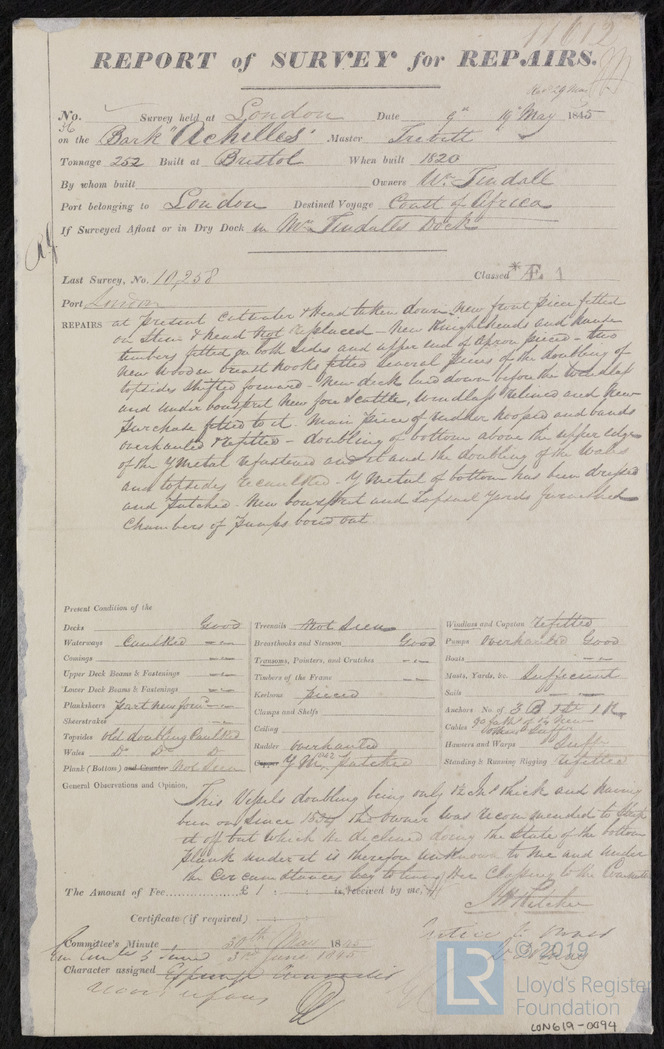 11612
REPORT of SURVEY for REPAIRS.
No. 36 Survey held at London Date 9th 19th May 1845
on the Bark "Achilles" Master Trebitt
Tonnage 252 Built at Bristol When built 1820
By whom built Owners Wm Tindall
Port belonging to London Destined Voyage Coast of Africa
If Surveyed Afloat or in Dry Dock in Mr Tindall's Dock
Last Survey, No. 10,258 Classed *Æ 1
Port London
REPAIRS at present Cutwater & Head taken down new front piece fitted
on Stem & Head Not replaced - New Knightheads and hawse
timbers fitted on both sides and upper end of Apron pieced - two
new Wooden breast hooks fitted several pieces of the doubling of
topsides shifted forward - New deck laid down before the Windlass
and under bowsprit New fore Scuttle, Windlass relined and New
purchase fitted to it. Main piece of rudder hooped and bands
overhauled & refitted - doubling of bottom above the upper edge
of the Y Metal refastened and it and the doubling of the Wales
and topsides recaulked - Y Metal of bottom has been dressed
and patched - New bowsprit and Topsail Yards furnished
Chambers of Pumps bored out
Present Condition of the
Decks Good
Waterways Caulked
Comings
Upper Deck Beams & Fastenings
Lower Deck Beams & Fastenings
Planksheers part new
Sheerstrakes
Topsides old doubling Caulked
Wales Do Do D
Plank (Bottom) and Counter Not Seen
Treenails Not Seen
Breasthooks and Stemson Good
Transoms, Pointers, and Crutches
Timbers of the Frame
Keelsons pieced
Clamps and Shelfs
Ceiling
Rudder overhauled
Copper Y M. 1842 patched
Windlass and Capstan refitted
Pumps Overhauled Good
Boats
Masts, Yards, &c Sufficient
Sails
Anchors No. of 3 B 1 St 1 K
Cables
Hawsers and Warps Suff
Standing & Running Rigging refitted
General Observations and Opinion,
This Vessels doubling being only 1½ Ins thick and having
been on since the owner was recommended to Strip
it off but which he declined doing the State of the bottom
plank under it is therefore unknown to me and under
the Circumstances beg to leave her Classing to the Committee
The Amount of Fee £ 1 : : is received by me,
Certificate (if required)
Committee's Minute 30th May 1845
3rd June 1845
Character assigned
© 2019
LR
Lloyd's Register
Foundation
LON619-0094